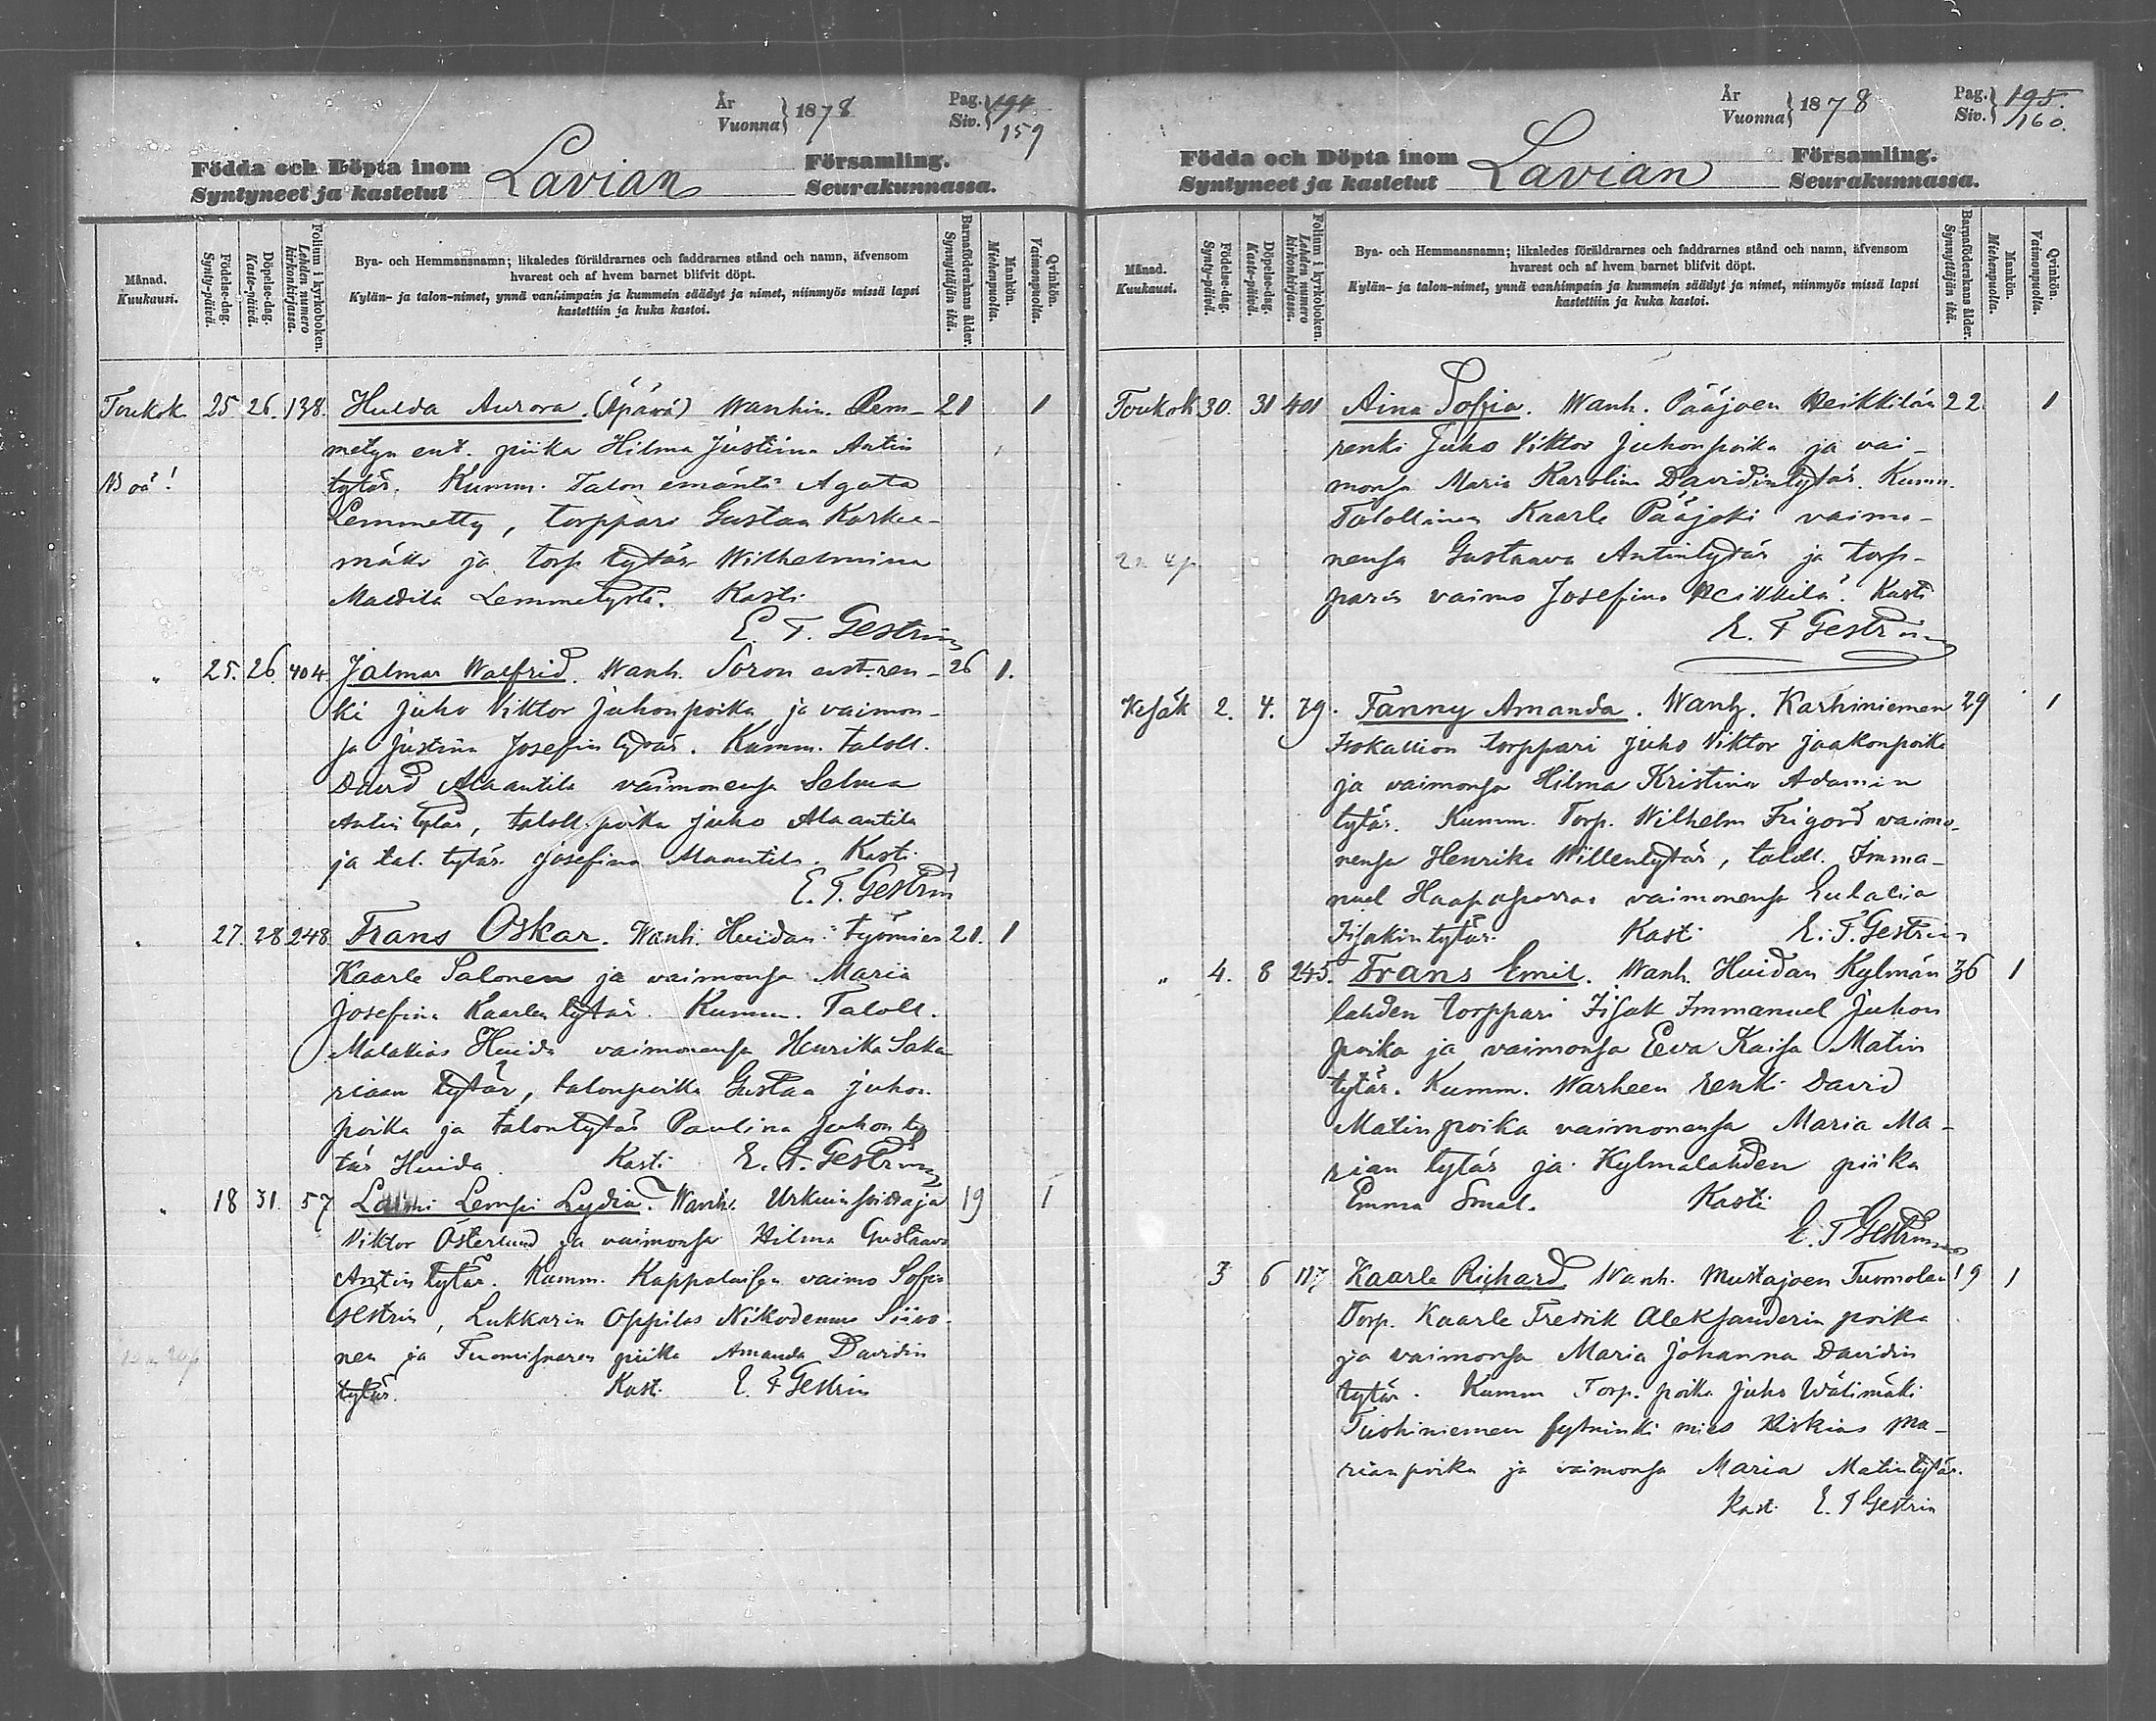 År
Vuonna } 1878
Pag.
Siv. } 194
159
Födda och Döpta inom
Syntyneet ja kastetut
Lavian
Församling.
Seurakunnassa.
Månad.
Kuukausi.
Födelse-dag.
Synty-päivä.
Döpelse-dag.
Kaste-päivä.
Folium i kyrkoboken.
Lehden numero kirkonkirjassa.
Bya- och Hemmansnamn; likaledes föräldrarnes och faddrarnes stånd och namn, äfvensom
hvarest och af hvem barnet blifvit döpt.
Kylän- ja talon-nimet, ynnä vanhimpain ja kummein säädyt ja nimet, niinmyös missä lapsi
kastettiin ja kuka kastoi.
Barnaföderskans ålder.
Synnyttäjän ikä.
Mankön.
Miehenpuolia.
Qvinkön.
Vaimonpuolia.
Toukok 25 26. 138. Hulda Aurora. (Äpärä) Wanhin. Lem- 21 1
metyn ent. piika Hilma Justiina Antin
tytär. Kumm. Talon emäntä Agata
Lemmetty, torppari Gustaa
mäki ja torp tytär Wilhelmiina
Matilda Kasti
E. F. Gestrin
" 25. 26. 404. Jalmar Walfrid. Wanh. Soron ent. ren- 26 1.
ki Juho Viktor Juhonpoika ja vaimon-
sa Justiina Josefin tytär. Kumm. taloll.
David Alaantila vaimonensa Selma
Antin tytär, taloll. poika Juho Alaantila
ja tal. tytär Josefina Alaantila. Kasti
E. F. Gestrin
" 27. 28 248 Frans Oskar. Wanh. Huidan työmies 21. 1
Kaarle Salonen ja vaimonsa Maria
Josefina Kaarlen tytär. Kumm. Taloll.
Malakias Huida vaimonensa Henrika Saka
riaan tytär, talonpoika Gustaa Juhon
poika ja talontytär Paulina Juhon ty
tär Huida. Kasti E. F. Gestrin
" 18 31. 57 Lempi Lydia. Wanh. Urkuin soittaja 19 1
Viktor Österlund ja vaimonsa Hilma Gustaava
Antin tytär. Kumm. Kappalaisen vaimo Sofia
Gestrin, Lukkarin oppilas Nikodemus Siivo-
nen ja piika Amanda Davidin
tytär. Kast. E. F. Gestrin
År
Vuonna } 1878
Pag.
Siv. } 195.
160.
Födda och Döpta inom
Syntyneet ja kastetut
Lavian
Församling.
Seurakunnassa.
Månad.
Kuukausi.
Födelse-dag.
Synty-päivä.
Döpelse-dag.
Kaste-päivä.
Folium i kyrkoboken.
Lehden numero kirkonkirjassa.
Bya- och Hemmansnamn; likaledes föräldrarnes och faddrarnes stånd och namn, äfvensom
hvarest och af hvem barnet blifvit döpt.
Kylän- ja talon-nimet, ynnä vanhimpain ja kummein säädyt ja nimet, niinmyös missä lapsi
kastettiin ja kuka kastoi.
Barnaföderskans ålder.
Synnyttäjän ikä.
Mankön.
Miehenpuolia.
Qvinkön.
Vaimonpuolia.
Toukok 30. 31 401 Aina Sofia. Wanh. Pääjoen Heikkilän 22 1
renki Juho Viktor Juhonpoika ja vai-
monsa Maria Karolina Davidintytär. Kumm.
Talollinen Kaarle Pääjoki vaimo-
nensa Gustaava Antintytär ja torp-
parin vaimo Josefina Heikkilä. Kasti
E. F Gestrin
Kesäk 2. 4. 79. Fanny Amanda. Wanh. Karhiniemen 29 1
Isokallion torppari Juho Viktor Jaakonpoika
ja vaimonsa Hilma Kristina Adamin
tytär. Kumm. Torp. Wilhelm Frigord vaimo-
nensa Henrika Willentytär, taloll. Imma-
nuel vaimonensa Eulalia
Iisakin tytär. Kasti E. F. Gestrin
" 4. 8 245. Frans Emil. Wanh. Huidan Kylmän 36 1
lahden torppari Iisak Immanuel Juhon
poika ja vaimonsa Eeva Kaisa Matin
tytär. Kumm. Warheen renki David
Matin poika vaimonensa Maria Ma-
rian tytär ja Kylmälahden piika
Emma Smal. Kasti
E. F Gestrin
3 6 117 Kaarle Richard Wanh. Mustajoen Tuomolan 19 1
Torp. Kaarle Fredrik Aleksanderin poika
ja vaimonsa Maria Johanna Davidin
tytär. Kumm Torp. poika Juho Wälimäki
Tuohiniemen mies Hiskias Ma-
rian poika ja vaimonsa Maria Matintytär.
Kast. E. F Gestrin